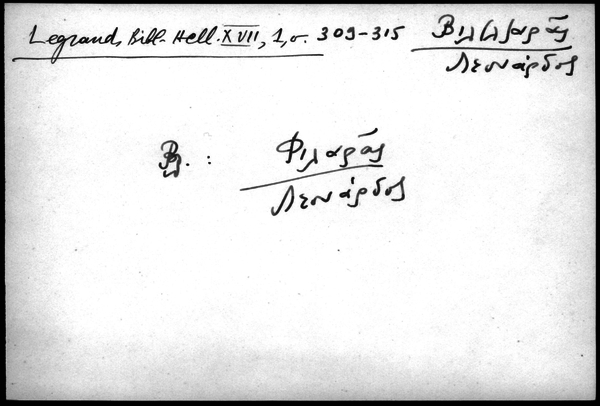 Legrand, Bibl. Hell. XVII, 1, σ. 309-315
Λεονάρδος
Βλ. : Φιλαρᾶς
Λεονάρδος